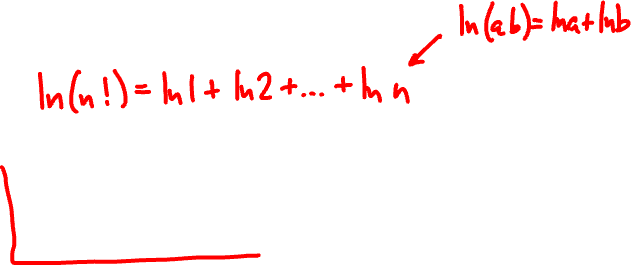 ln(ab)=lna+lnb
ln(n!)=ln1+ln2+...+ln n